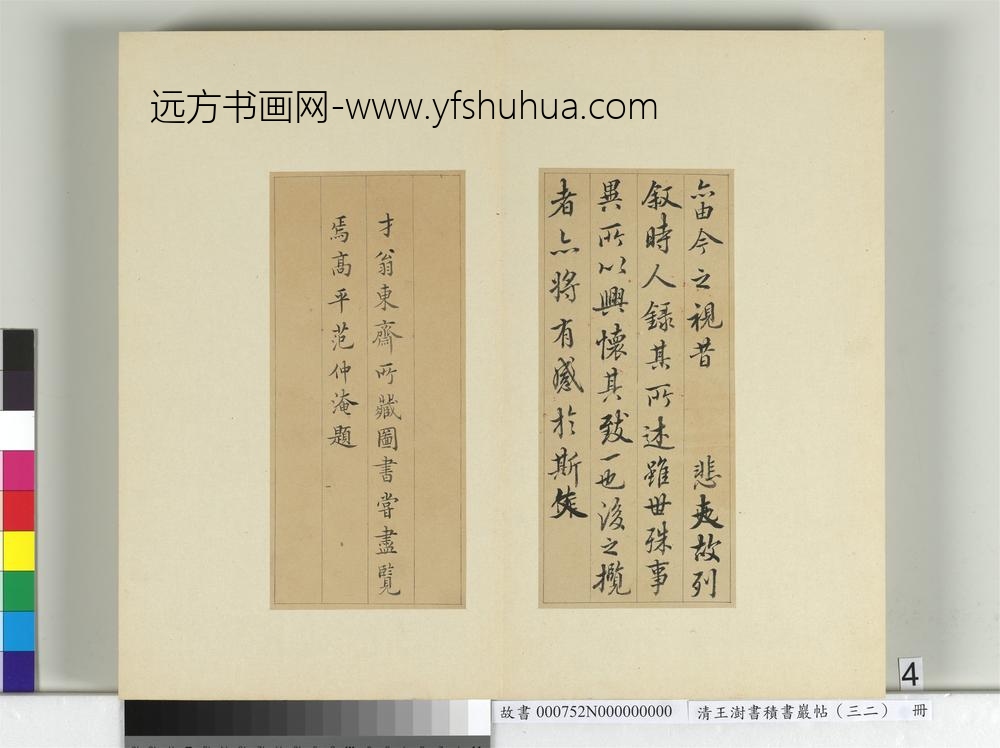 远方书画网-www.yfshuhua.com
亦由今之視昔 悲夫故列
叙時人錄其所述雖世殊事
異所以興懷其致一也後之攬
者亦將有感於斯文
才翁東齋所藏圖書嘗盡覽
焉高平范仲淹題
4
故書 000752N000000000
清王澍書積書巖帖(三二) 冊